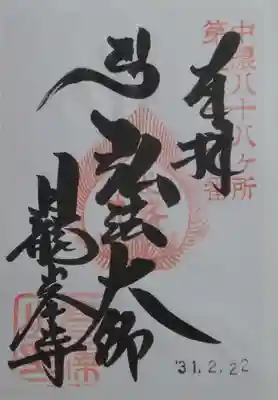 中濃八十八ヶ所
奉拝
弘法大師
日龍峯寺
'31.2.22